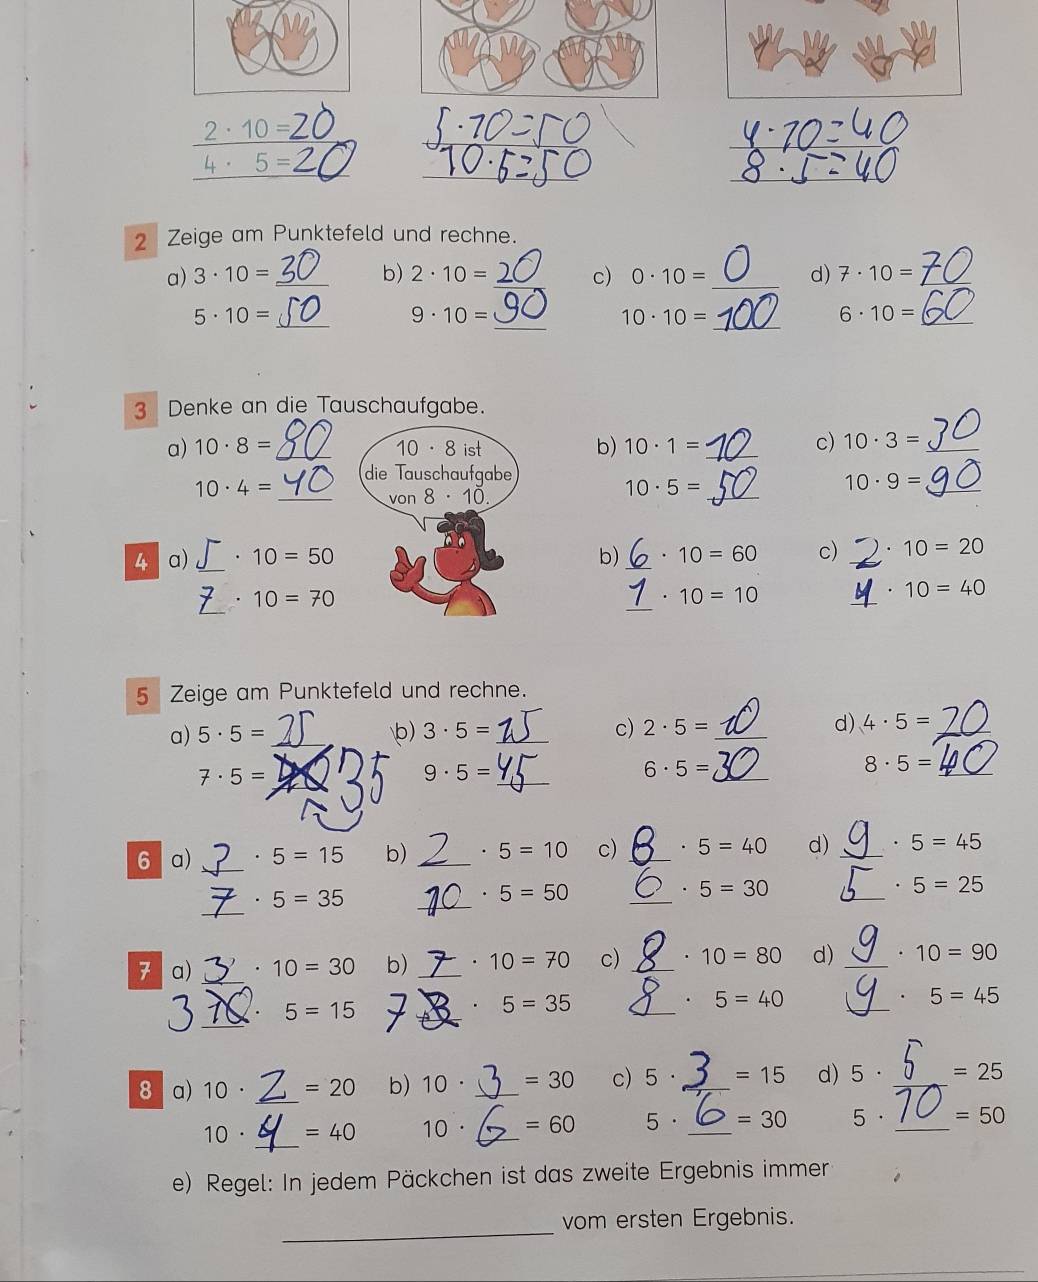 2 · 10 = 20 5 · 10 = 50 4 · 10 = 40
4 · 5 = 20 10 · 5 = 50 8 · 5 = 40
2 Zeige am Punktefeld und rechne.
a) 3 · 10 = 30 b) 2 · 10 = 20 c) 0 · 10 = 0 d) 7 · 10 = 70
5 · 10 = 50 9 · 10 = 90 10 · 10 = 100 6 · 10 = 60
3 Denke an die Tauschaufgabe.
a) 10 · 8 = 80 b) 10 · 1 = 10 c) 10 · 3 = 30
10 · 4 = 40 10 · 5 = 50 10 · 9 = 90
10 · 8 ist
die Tauschaufgabe
von 8 · 10.
4 a) 5 · 10 = 50 b) 6 · 10 = 60 c) 2 · 10 = 20
7 · 10 = 70 1 · 10 = 10 4 · 10 = 40
5 Zeige am Punktefeld und rechne.
a) 5 · 5 = 25 b) 3 · 5 = 15 c) 2 · 5 = 10 d) 4 · 5 = 20
7 · 5 = 35 9 · 5 = 45 6 · 5 = 30 8 · 5 = 40
6 a) 3 · 5 = 15 b) 2 · 5 = 10 c) 8 · 5 = 40 d) 9 · 5 = 45
7 · 5 = 35 10 · 5 = 50 6 · 5 = 30 5 · 5 = 25
7 a) 3 · 10 = 30 b) 7 · 10 = 70 c) 8 · 10 = 80 d) 9 · 10 = 90
3 · 5 = 15 7 · 5 = 35 8 · 5 = 40 9 · 5 = 45
8 a) 10 · 2 = 20 b) 10 · 3 = 30 c) 5 · 3 = 15 d) 5 · 5 = 25
10 · 4 = 40 10 · 6 = 60 5 · 6 = 30 5 · 10 = 50
e) Regel: In jedem Päckchen ist das zweite Ergebnis immer
vom ersten Ergebnis.